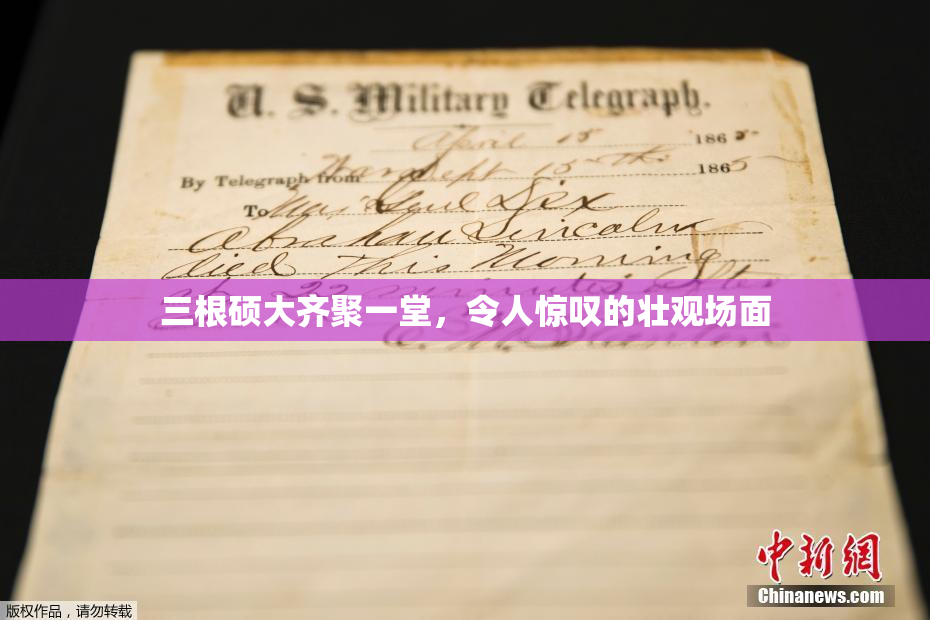 U. S. Military Telegraph.
April 15 1865
By Telegraph from War Dept 15th 1865
To Maj Genl Dix
Abraham Lincoln
died This Morning
at 22 minutes after
三根硕大齐聚一堂，令人惊叹的壮观场面
E. M. Stanton
中新网
Chinanews.com
版权作品，请勿转载